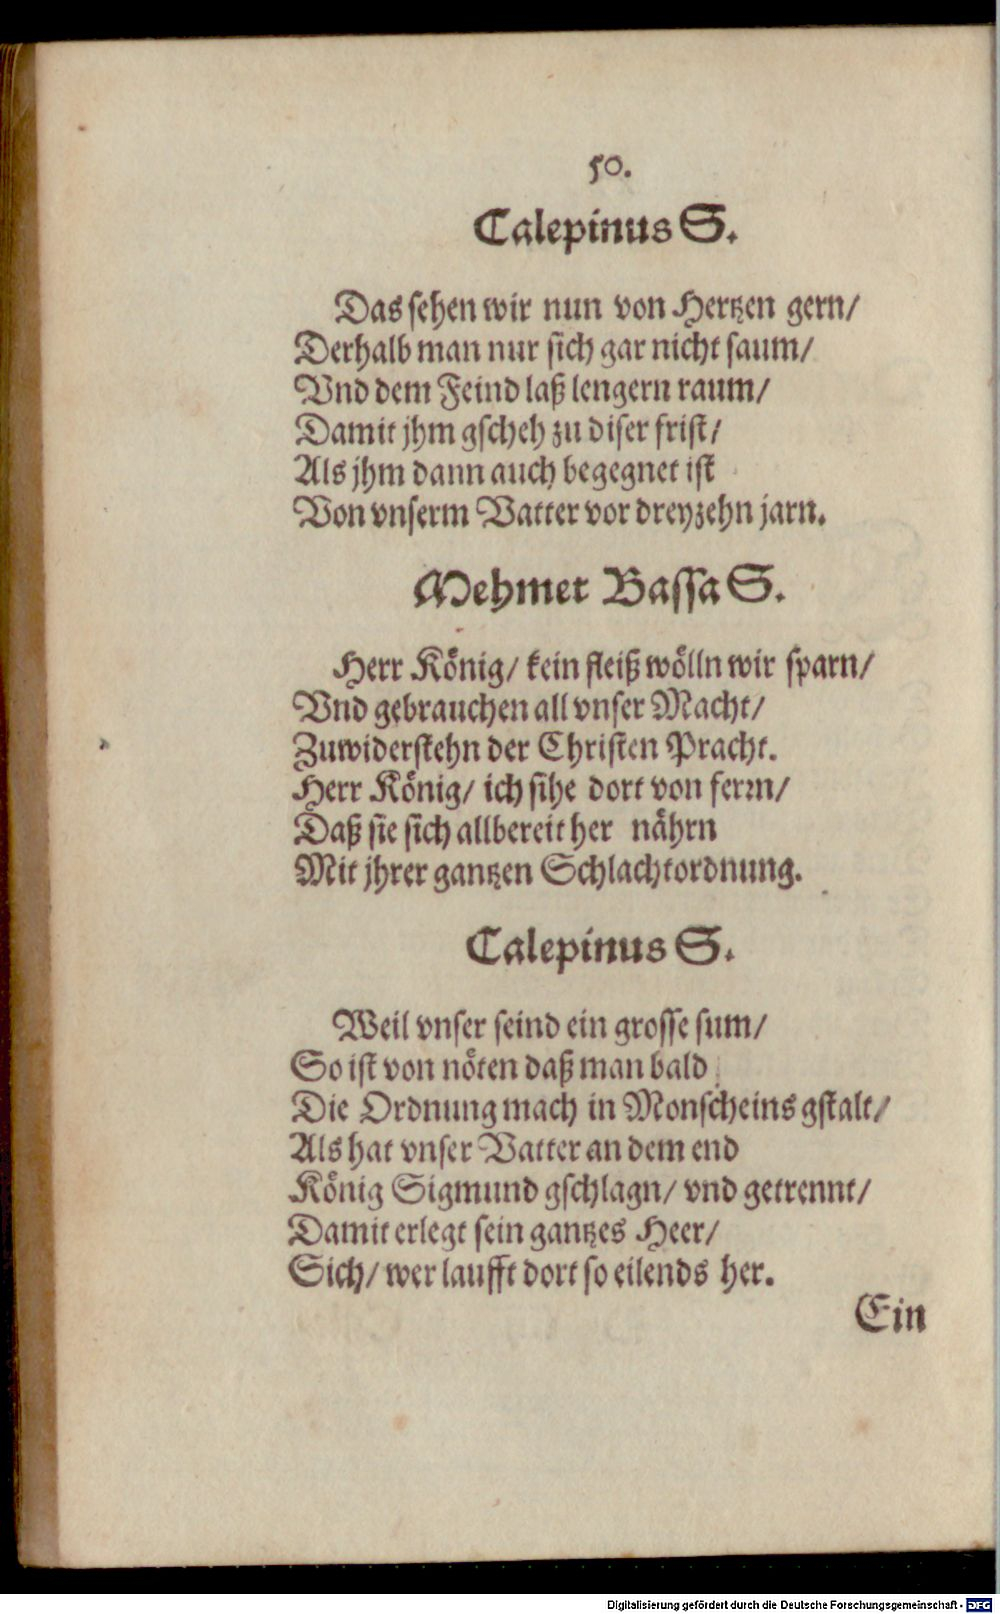 50.
Calepinus S.
Das sehen wir nun von Hertzen gern/
Derhalb man nur sich gar nicht saum/
Vnd dem Feind laß lengern raum/
Damit jhm gscheh zu diser frist/
Als jhm dann auch begegnet ist
Von vnserm Vatter vor dreyzehn jarn.
Mehmet Bassa S.
Herr König/ kein fleiß wölln wir sparn/
Vnd gebrauchen all vnser Macht/
Zuwiderstehn der Christen Pracht.
Herr König/ ich sihe dort von ferrn/
Daß sie sich allbereit her nährn
Mit jhrer gantzen Schlachtordnung.
Calepinus S.
Weil vnser seind ein grosse sum/
So ist von nöten daß man bald
Die Ordnung mach in Monscheins gstalt/
Als hat vnser Vatter an dem end
König Sigmund gschlagn/ vnd getrennt/
Damit erlegt sein gantzes Heer/
Sich/ wer laufft dort so eilends her.
Ein
Digitalisierung gefördert durch die Deutsche Forschungsgemeinschaft - DFG